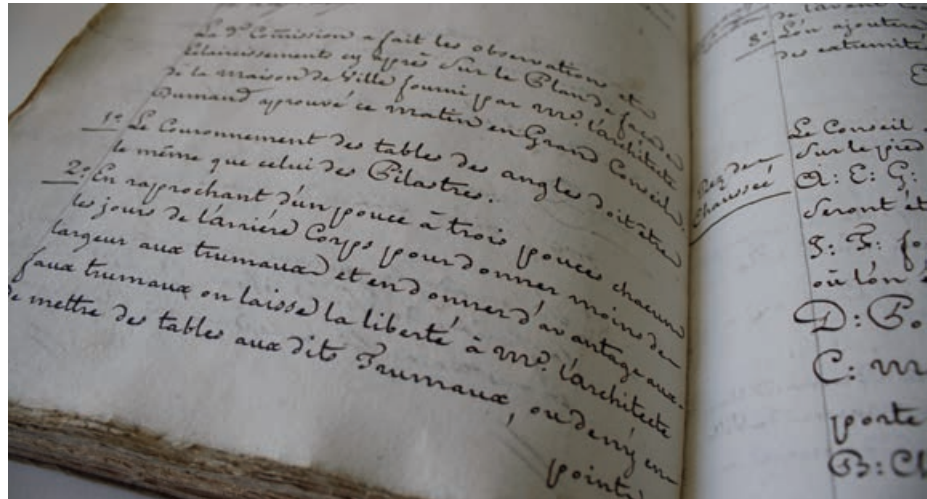 La d.e Comission a fait les observations et
éclaircissements cy après sur le Plan de façade
de la maison de Ville fourni par mr. l'architecte
Dumand aprouvé ce matin en Grand Conseil.
1o. Le Couronnement des tables des angles doit être
le même que celui des Pilastres.
2o. En raprochant d'un pouce à trois pouces chacun
les jours de l'arriére Corps pour donner moins de
largeur aux trumaux et en donner d'avantage aux
faux trumaux on laisse la liberté à mr. l'architecte
de mettre des tables aux dits Trumaux, ou d'en
point
8o.
L'on ajoutera
des extremité
Rez de
Chausseé
Le Conseil
Sur le pied
A: E: G:
Seront et
J: F: fo
où l'on
D: Po
C: m
porte
B: Ch